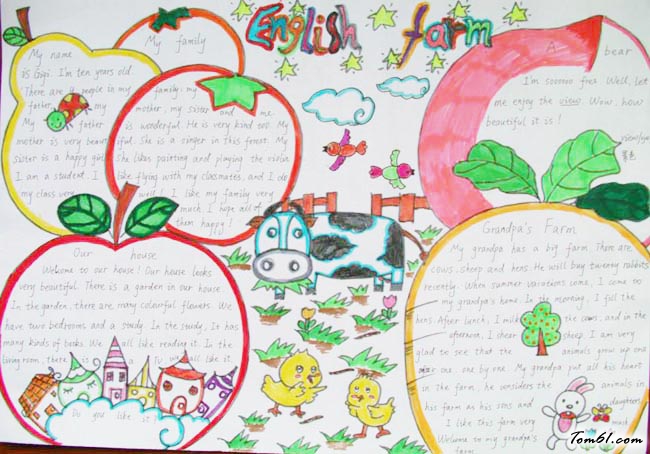 English farm
My family
My name
is Gigi. I'm ten years old.
There are people in my family: my
father, my mother, my sister and me
My father is wonderful. He is very kind too. My
mother is very beautiful. She is a singer in this forest. My
sister is a happy girl. She likes painting and playing the violin.
I am a student. I like flying with my classmates, and I do
my class very well! I like my family very
much. I hope all of
them happy!
A bear
I'm soooooo free. Well, let
me enjoy the view. Wow, how
beautiful it is!
view
景色
Our house
Welcome to our house! Our house looks
very beautiful. There is a garden in our house.
In the garden, there are many colourful flowers. We
have two bedrooms and a study. In the study, It has
many kinds of books. We all like reading it. In the
living room, there is a TV we all like it.
Do you like it
Grandpa's Farm
My grandpa has a big farm. There are
cows, sheep and hens. He will buy twenty rabbits
recently. When summer varations come, I come to
my grandpa's home. In the morning, I fell the
hens. After lunch, I milk the cows, and in the
afternoon, I shear sheep. I am very
glad to see that the animals grow up one
one by one. My grandpa put all his heart
in the farm, he considers the animals in
his farm as his sons and daughters
I like this farm very much
Welcome to my grandpa's
farm
Tom61.com